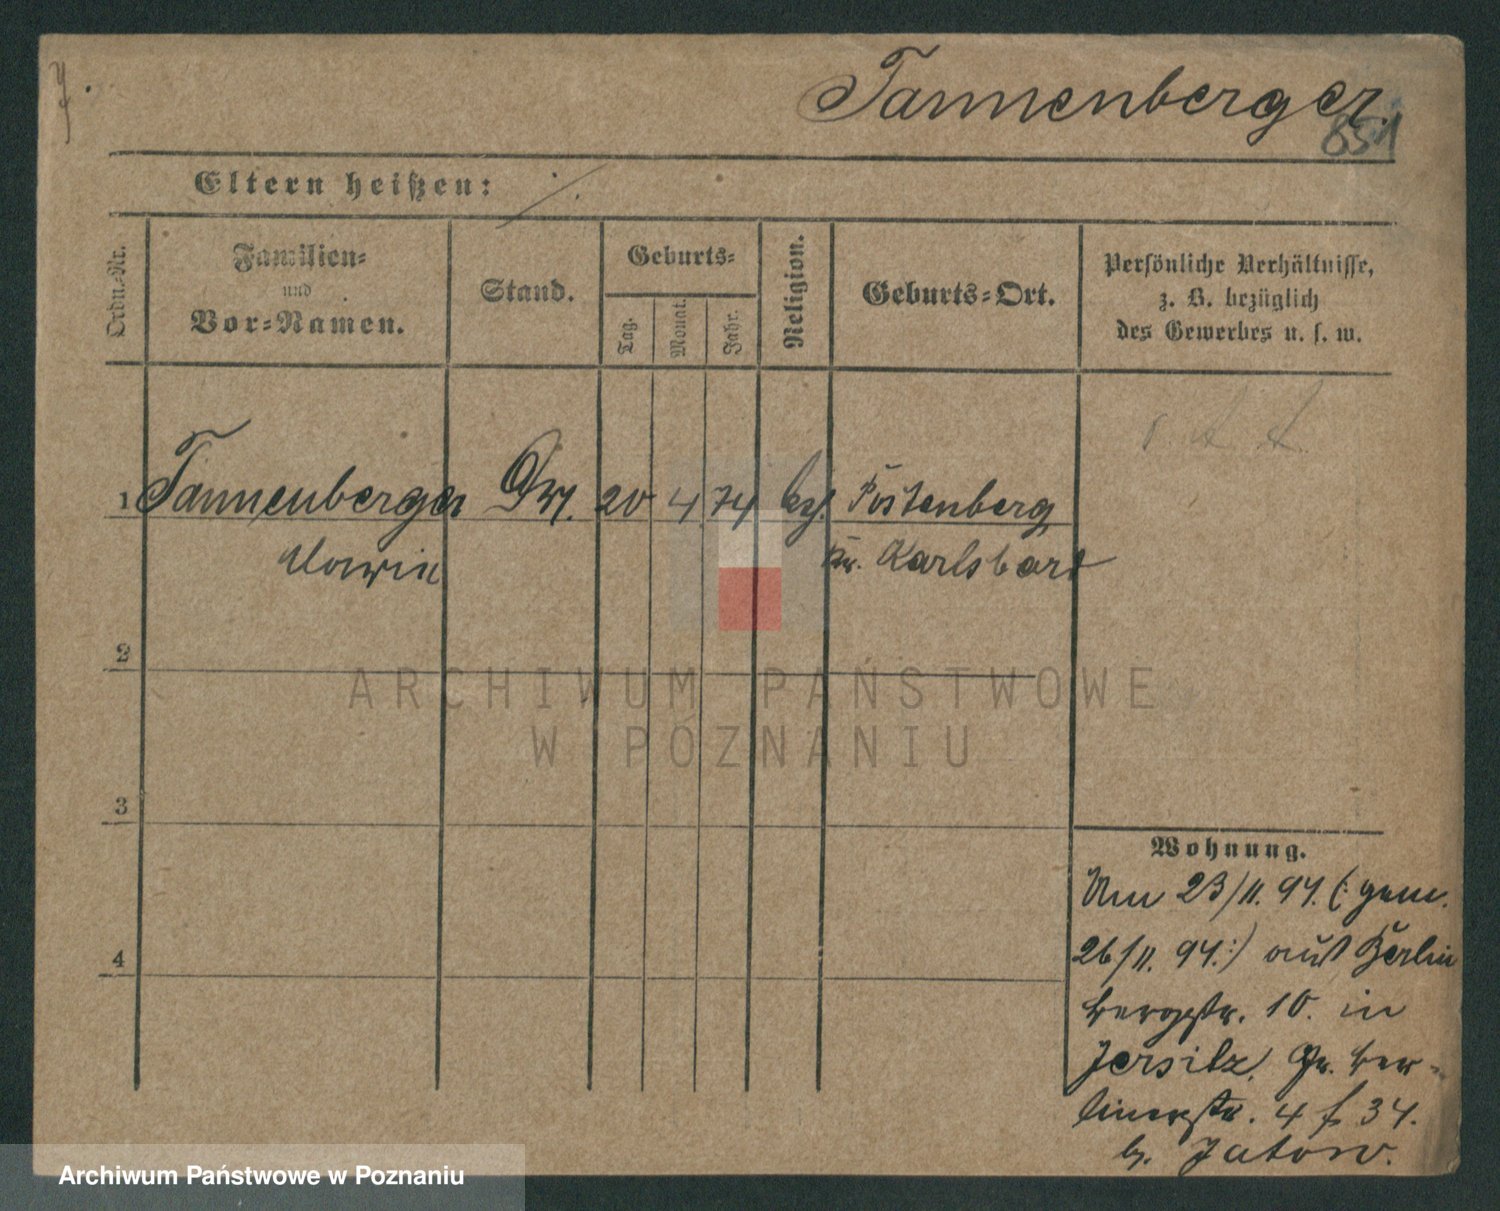 Tannenberger.
851
Eltern heißen: ./.
Ordn.-Nr.
Familien-
und
Vor-Namen.
Stand.
Geburts-
Tag.
Monat.
Jahr.
Religion.
Geburts-Ort.
Persönliche Verhältnisse,
z. B. bezüglich
des Gewerbes u. s. w.
1 Tannenberger 20 4 74 Postenberg
Kr. Karlsbart
2
3
4
Wohnung.
Am 23/11. 94. (: gem.
26/11. 94. :) aus Berlin
Bergstr. 10. in
Jersitz, Gr. Ber-
linerstr. 4
b. Jatow.
ARCHIWUM PAŃSTWOWE
W POZNANIU
Archiwum Państwowe w Poznaniu